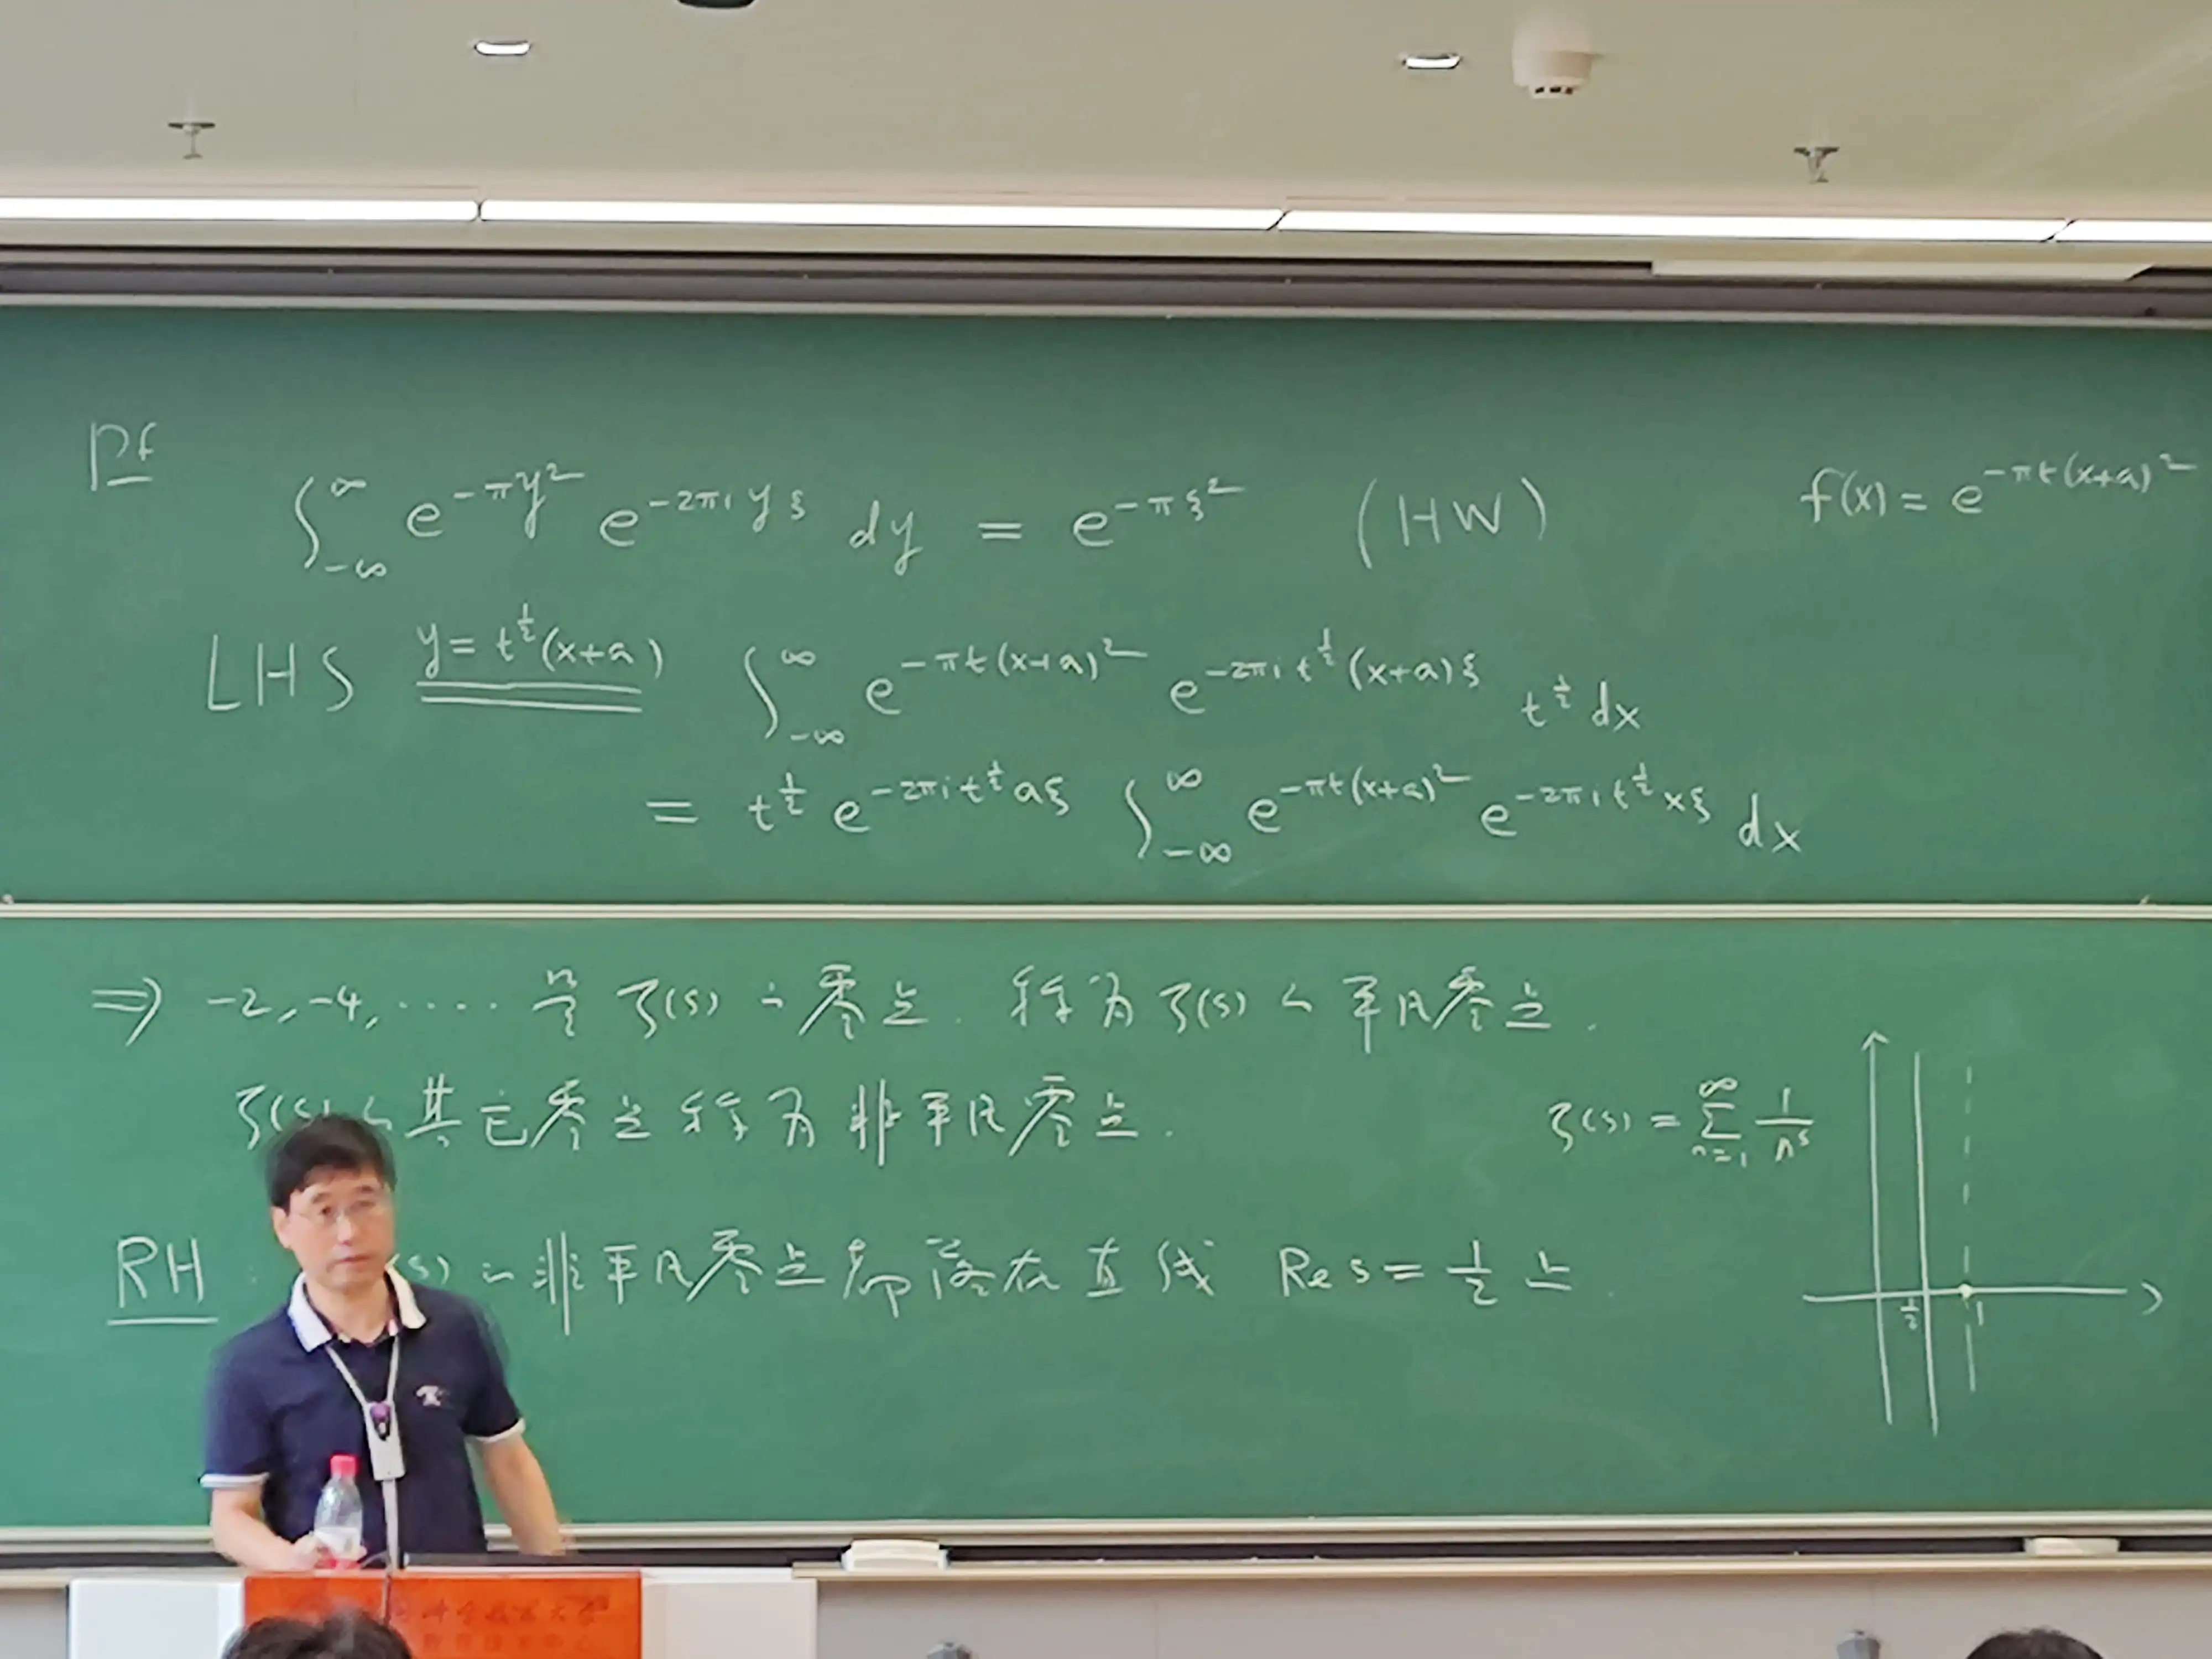 Pf
∫_{-∞}^{∞} e^{-πy²} e^{-2πi yξ} dy = e^{-πξ²} (HW) f(x) = e^{-πt(x+a)²}
LHS y = t^{1/2}(x+a) ∫_{-∞}^{∞} e^{-πt(x+a)²} e^{-2πi t^{1/2}(x+a)ξ} t^{1/2} dx
= t^{1/2} e^{-2πi t^{1/2} aξ} ∫_{-∞}^{∞} e^{-πt(x+a)²} e^{-2πi t^{1/2} xξ} dx
⇒ -2, -4, ····· 是 ζ(s) 的零点. 称为 ζ(s) 的平凡零点.
ζ(s) 的其它零点称为非平凡零点.
ζ(s) = ∑_{n=1}^{∞} 1/n^s
RH : (s) 的非平凡零点都落在直线 Re s = 1/2 上.
1/2 1
科学技术大学